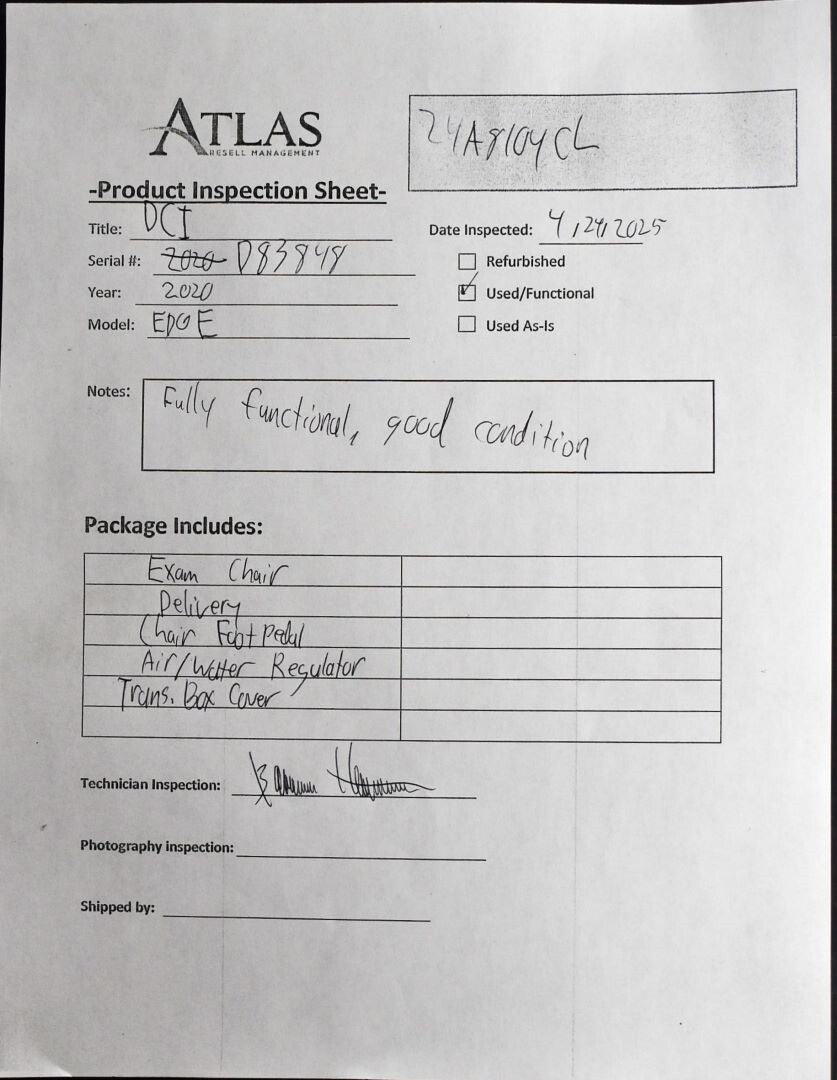 ATLAS
RESELL MANAGEMENT
24A8104CL
-Product Inspection Sheet-
Title: DCI
Date Inspected: 4/24/2025
Serial #: 2020 D83848
Refurbished
Year: 2020
Used/Functional
Model: EDGE
Used As-Is
Notes: Fully functional, good condition
Package Includes:
Exam Chair
Delivery
Chair Foot Pedal
Air/Water Regulator
Trans. Box Cover
Technician Inspection:
Photography inspection:
Shipped by: